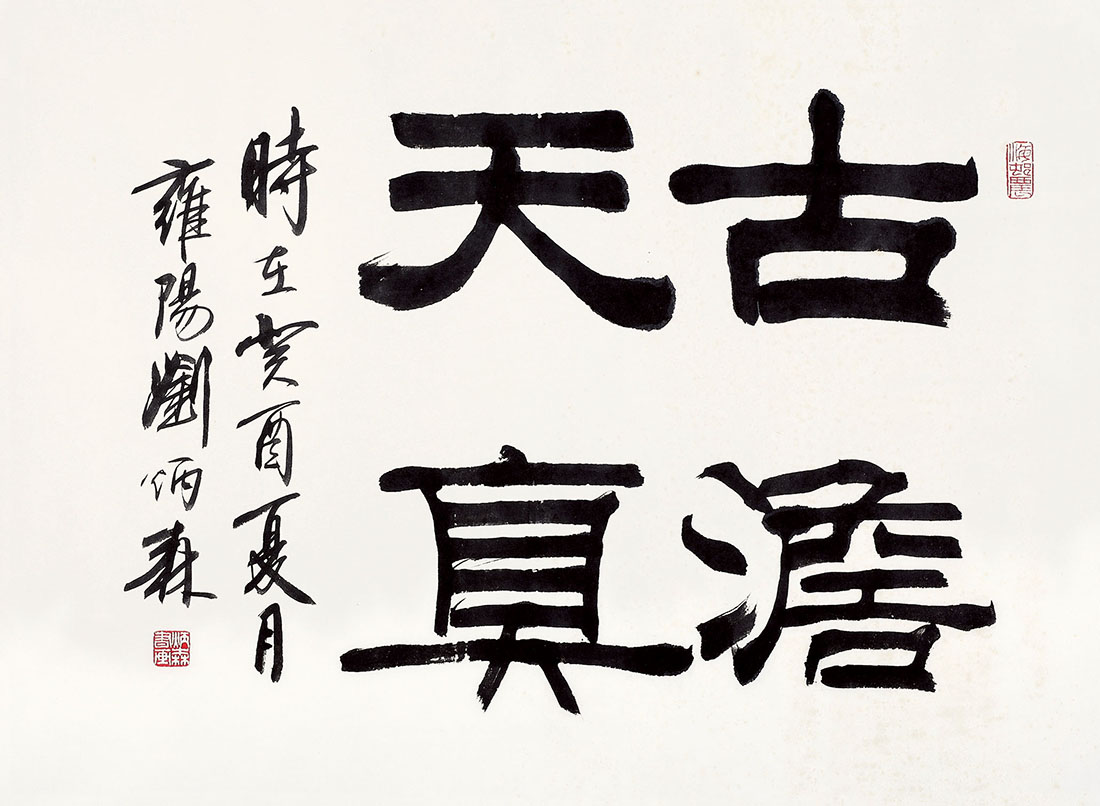 海邨農
古澹
天真
時在癸酉夏月
雍陽劉炳森
炳森書画